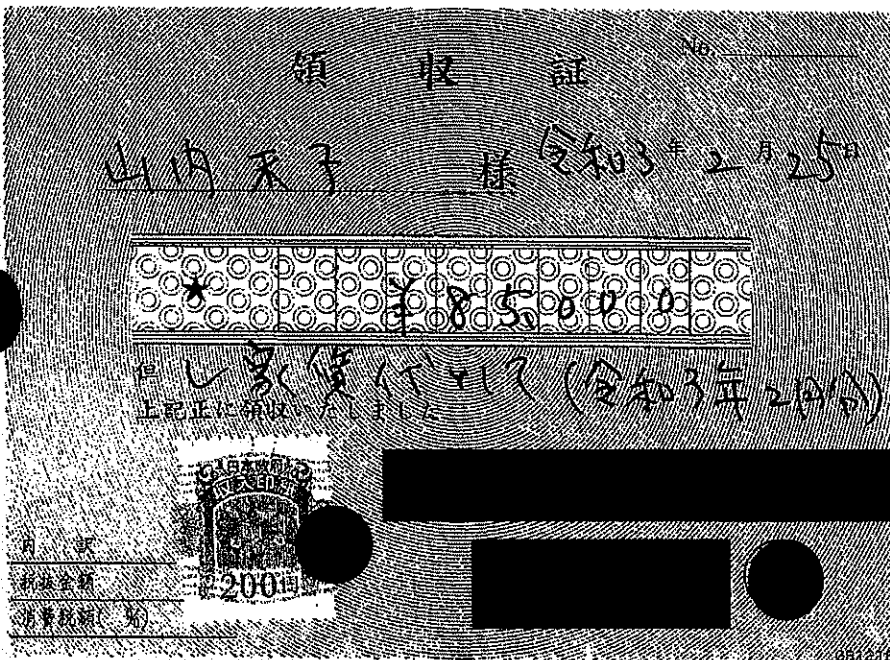 No.
領収証
山内禾子 様 令和3年2月25日
★ ¥85,000
但し家賃代として(令和3年2月分)
上記正に領収いたしました
日本政府
収入印紙
200円
内訳
税抜金額
消費税額( %)